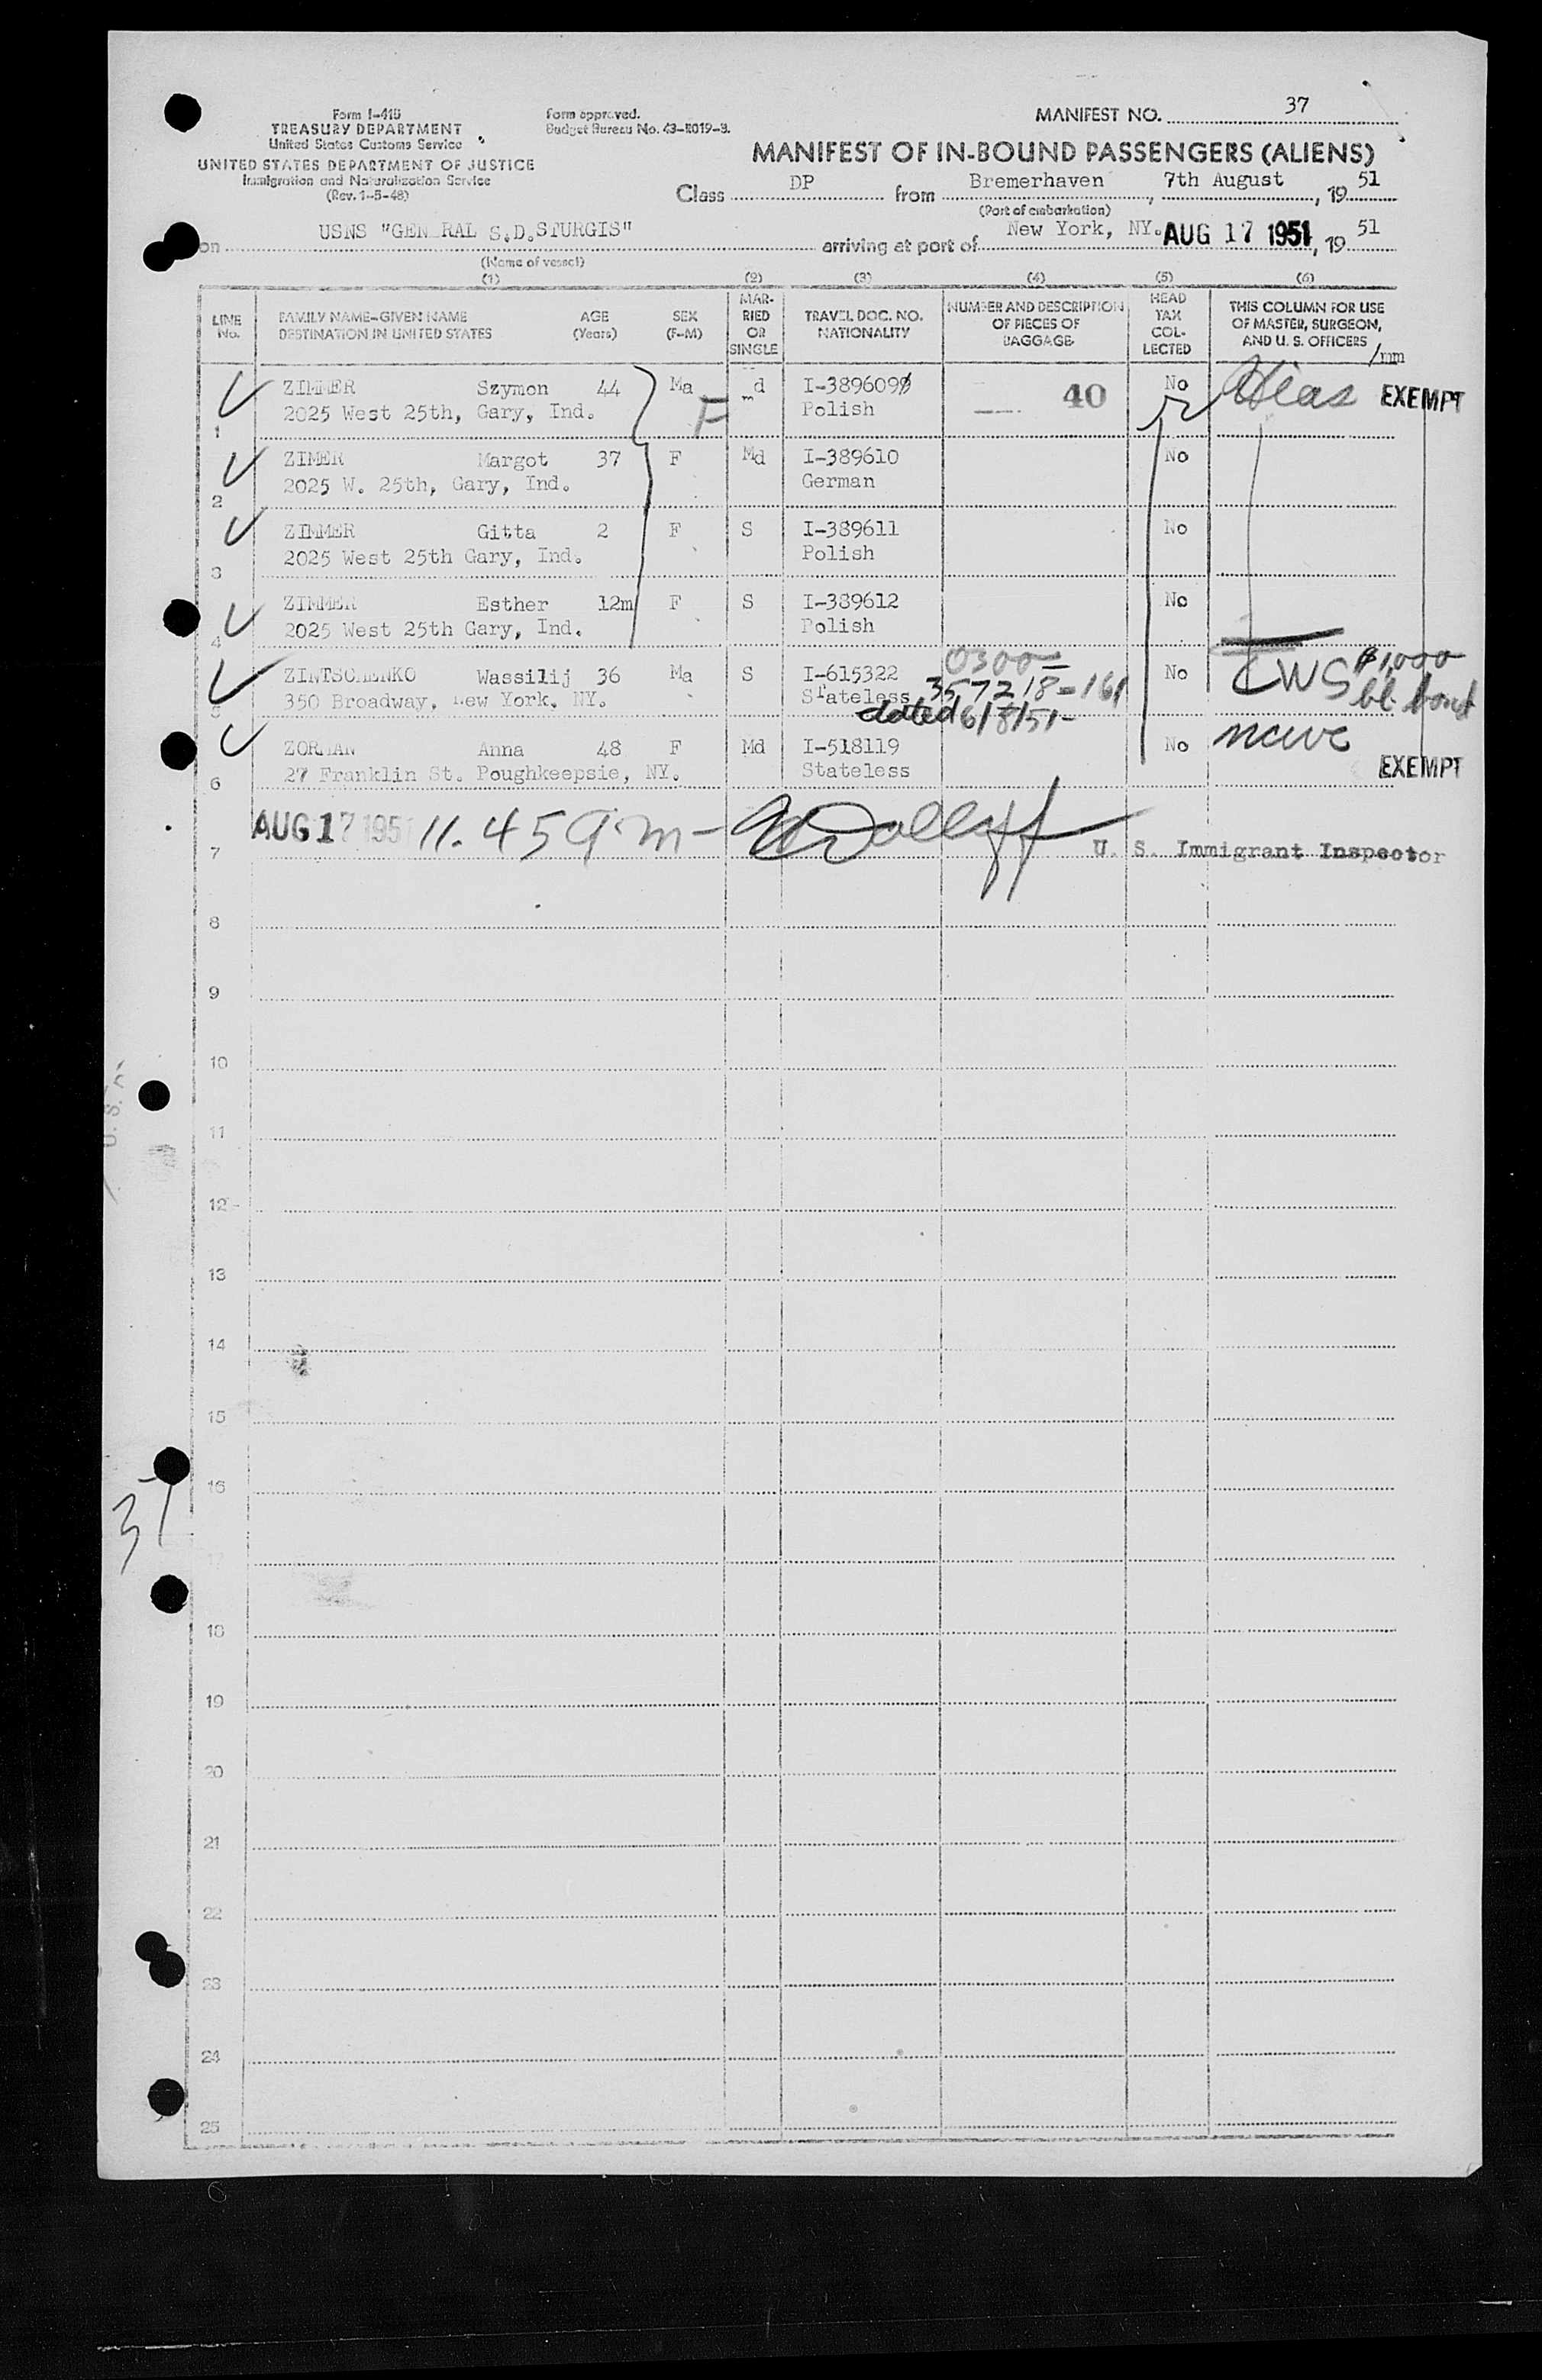 Form I-415
TREASURY DEPARTMENT
United States Customs Service
UNITED STATES DEPARTMENT OF JUSTICE
Immigration and Naturalization Service
(Rev. 1-5-48)
Form approved.
Budget Bureau No. 43-R019-3.
MANIFEST NO. 37
MANIFEST OF IN-BOUND PASSENGERS (ALIENS)
Class DP from Bremerhaven, 7th August, 1951
(Port of embarkation)
on USNS "GEN RAL S.D.STURGIS" arriving at port of New York, NY. AUG 17 1951, 19 51
(Name of vessel)
(1) (2) (3) (4) (5) (6)
LINE No. FAMILY NAME-GIVEN NAME DESTINATION IN UNITED STATES AGE (Years) SEX (F-M) MARRIED OR SINGLE TRAVEL DOC. NO. NATIONALITY NUMBER AND DESCRIPTION OF PIECES OF BAGGAGE HEAD TAX COLLECTED THIS COLUMN FOR USE OF MASTER, SURGEON, AND U. S. OFFICERS /mm
ZIMMER Szymon 44 Ma md I-389609 40 No Hias EXEMPT
1 2025 West 25th, Gary, Ind. F Polish
ZIMER Margot 37 F Md I-389610 No
2 2025 W. 25th, Gary, Ind. German
ZIMMER Gitta 2 F S I-389611 No
3 2025 West 25th Gary, Ind. Polish
ZIMMER Esther 12m F S I-389612 No
4 2025 West 25th Gary, Ind. Polish
ZINTSCHENKO Wassilij 36 Ma S I-615322 0300- No CWS $1,000
5 350 Broadway, New York, NY. Stateless 357218-161 bl. bond
dated 6/8/51-
ZORMAN Anna 48 F Md I-518119 No ncwc
6 27 Franklin St. Poughkeepsie, NY. Stateless EXEMPT
7 AUG 17 1951 11.45 am- U. S. Immigrant Inspector
8
9
10
11
12
13
14
15
16
17
18
19
20
21
22
23
24
25
37